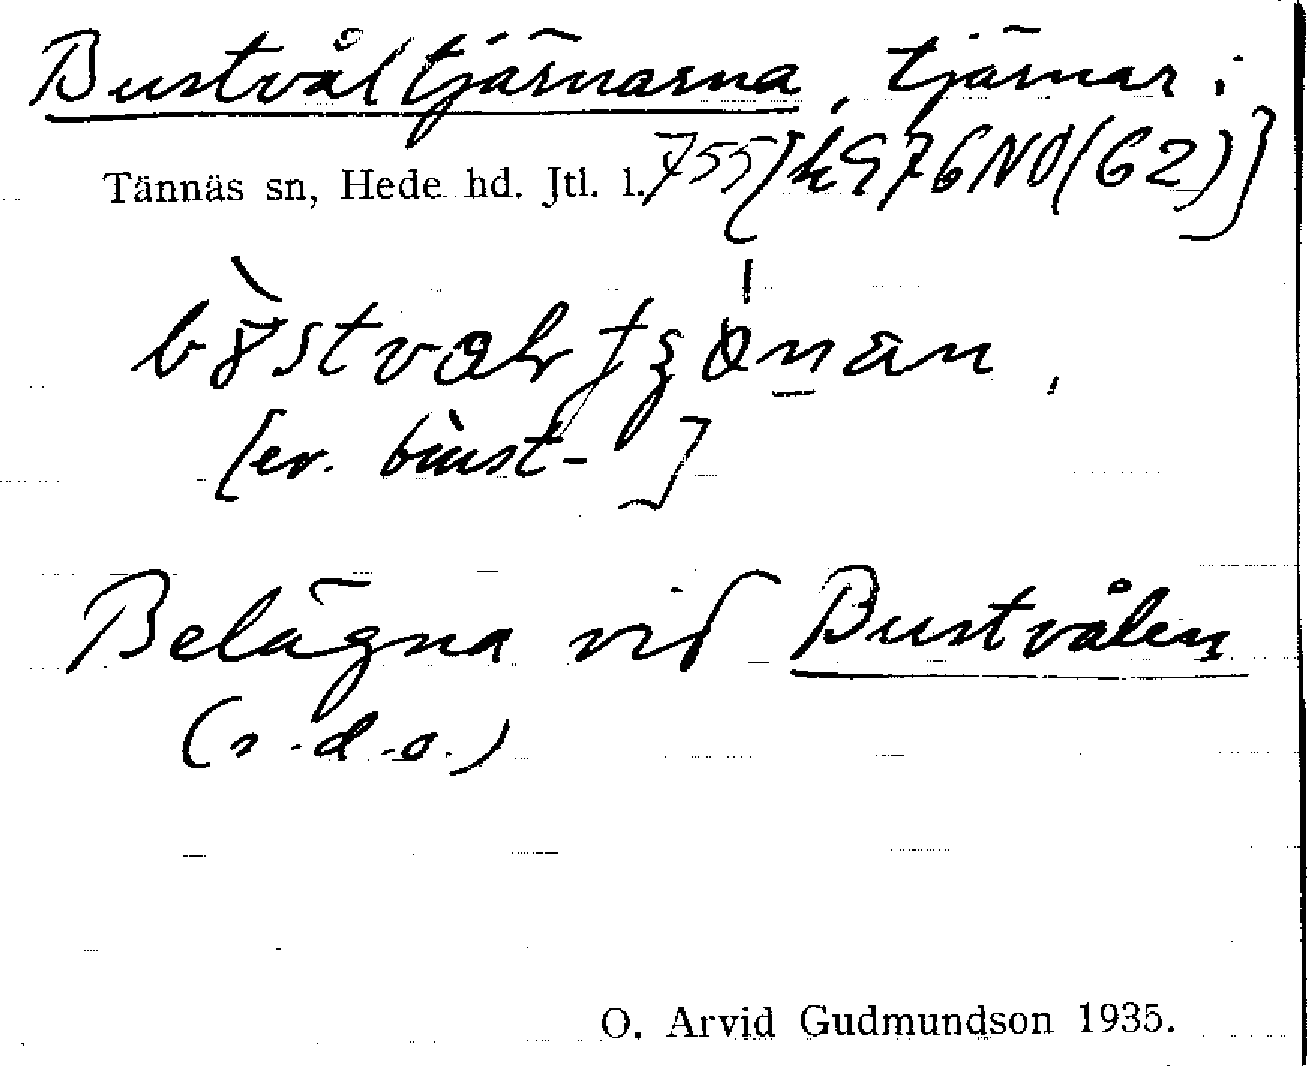 Bustvåltjärnarna, tjärnar i
Tännäs sn, Hede hd. Jtl. l. 755 [h976NV(62)]
[ev. bùust-]
Belägna vid Bustvålen
(s.d.o.)
O. Arvid Gudmundson 1935.